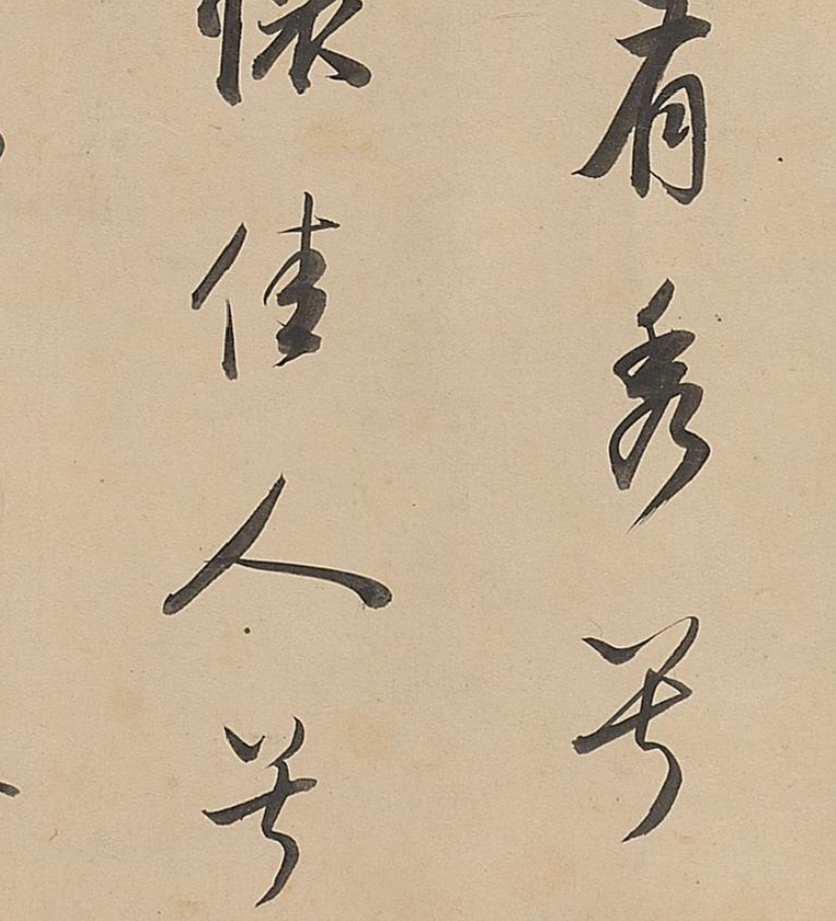 有秀兮
懷佳人兮